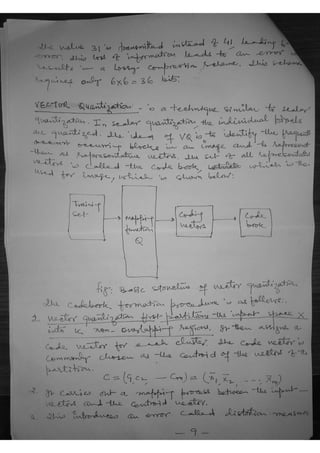 The value 31 is transmitted instead of 41, leading to
error, this lost of information leads to an error &
results in a lossy compression scheme. This scheme
requires only 6x6 = 36 bits.
VECTOR Quantization - is a technique similar to scalar
quantization. In scalar quantization the individual pixels
are quantized. The idea of VQ is to identify the frequent
occuring blocks in an image and to represent
them as representative vectors. The set of all representative
vectors is called the code book, which is then
used for image, which is shown below:
Training
set.
Mapping
function
Q
Coding
vectors
Code
book.
fig: Basic structure of vector quantization
The codebook formation procedure is as follows:
1. Vector quantization first partitions the input space X
into K non-overlapping regions. It then assigns a
code vector for each cluster. The code vector is
commonly chosen as the centroid of the vectors of the
partition.
C = (C1 C2, -- Cm) = (x̄1, x̄2, ... x̄m)
2. It carries out a mapping process between the input
vectors and the centroid vector.
This introduces an error called distortion measure
- 9 -